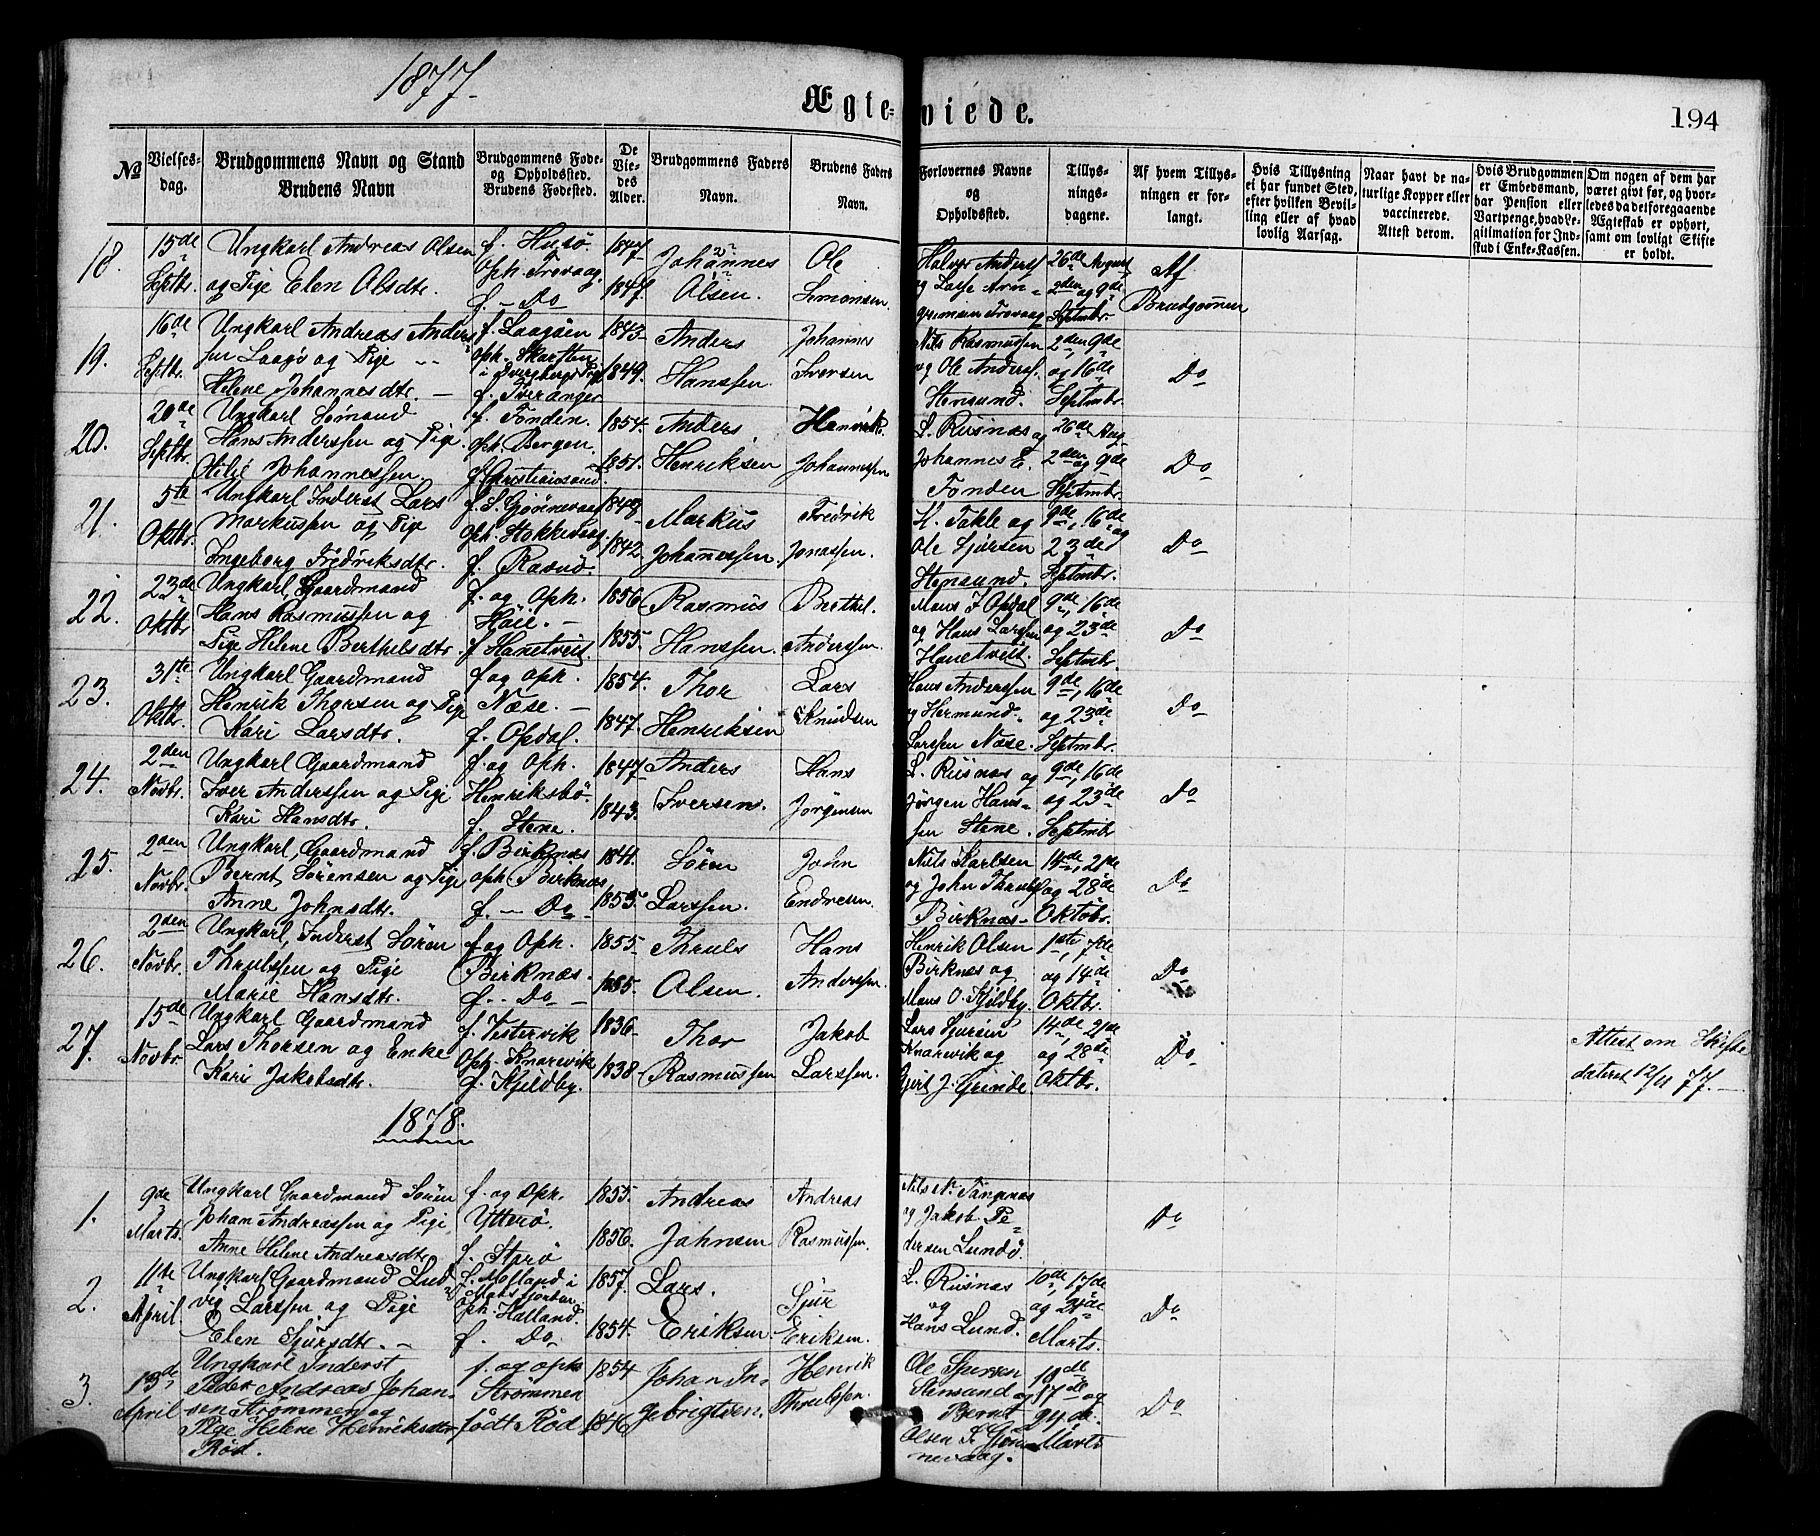 1877.
Ægte-viede.
194
No
Vielses-dag.
Brudgommens Navn og Stand
Brudens Navn
Brudgommens Føde- og Opholdssted.
Brudens Fødested.
De Vie-des Alder.
Brudgommens Faders Navn.
Brudens Faders Navn.
Forlovernes Navne og Opholdssted.
Tillys-nings-dagene.
Af hvem Tillys-ningen er for-langt.
Hvis Tillysning ei har fundet Sted, efter hvilken Bevil-ling eller af hvad lovlig Aarsag.
Naar havt de na-turlige Kopper eller vaccinerede. Attest derom.
Hvis Brudgommen er Embedsmand, har Pension eller Vartpenge, hvad Le-gitimation for Ind-skud i Enke-Kassen.
Om nogen af dem har været givt før, og hvor-ledes da det foregaaende Ægteskab er ophørt, samt om lovligt Skifte er holdt.
18. 15de Septbr. Ungkarl Andreas Olsen og Pige Elen Olsdtr. f. Husø. Oph. Trovaag. f. - Do 1847. 1847. Johannes Olsen. Ole Simonsen Halvor Anders og Lasse Arn-grimsen Trovaag 26de August 2den og 9de Septmbr. Af Brudgommen
19. 16de Septbr. Ungkarl Andreas Anders-sen Laagø og Pige Helene Johannesdtr. f. Laagøen oph. Skarsten f. Tveranger 1843. 1849. Anders Hanssen. Johannes Iversen Nils Rasmussen og Ole Anders. Stensund. 2den 9de og 16de Septmbr. Do
20. 20de Septbr. Ungkarl Sømand Hans Anderssen og Pige Johannessen. f. Fonden. oph. Bergen. f. Christiansund. 1854. 1851. Anders Henriksen Henrik Johannessen L. Risnæs og Johannes E. Fonden 26de Aug. 2den og 9de Septmbr. Do
21. 5te Oktbr. Ungkarl Inderst Lars Markussen og Pige Ingeborg Fredriksdtr. f. S. Gjønnevaag oph. Stokkevaag. f. Ravnø. 1843. 1842. Markus Johannessen Fredrik Jonassen. H. Takle og Ole Sjursen Stensund. 9de, 16de og 23de Septmbr. Do
22. 23de Oktbr. Ungkarl, Gaardmand Hans Rasmussen og Pige Helene Berthelsdtr. f. og Oph. Høie. f. Hanetveit. 1856. 1855. Rasmus Hanssen. Berthel. Anderssen. Mons J. Opdal og Hans Larssen Hanetveit. 9de, 16de og 23de Septmbr. Do
23. 31te Oktbr. Ungkarl Gaardmand Henrik Thorsen og Pige Kari Larsdtr. f og oph. Næse. f. Opdal. 1854. 1847. Thor Henriksen Lars Knudsen Hans Anderssen og Hermund. Larssen Næse. 9de, 16de og 23de Septmbr. Do
24. 2den Novbr. Ungkarl Gaardmand Iver Anderssen og Pige Kari Hansdtr. f og Oph. Henriksbø. f. Stene. 1847. 1843. Anders Iversen. Hans Jørgensen L. Risnæs og Jørgen Hans-sen Stene. 9de, 16de og 23de Septmbr. Do
25. 2den Novbr. Ungkarl, Gaardmand Bernt Sørensen og Pige Anne Johnsdtr. f. Birknæs oph. Birknæs f. - Do 1841. 1855. Søren Larssen. John Endresen. Nils Karlsen og John Thruls Birknæs 14de, 21de og 28de Oktobr. Do
26. 2den Novbr. Ungkarl, Inderst Søren Thrulssen og Pige Marie Hansdtr. f og Oph. Birknæs. f. - Do 1855. 1855. Thruls Olsen. Hans Anderssen. Henrik Olsen Birknæs og Mons O. Kjeldby. 1ste, 7de og 14de Oktbr. Do
27. 15de Novbr. Ungkarl Gaardmand Lars Thorsen og Enke Kari Jakobsdtr. f. Vestervik Oph. Knarevik f. Kjeldby. 1836. 1838. Thor Rasmussen Jakob Larssen. Lars Sjursen Knarvik og Gjert J. Grinde. 14de, 21de og 28de Oktbr. Do Attest om Skifte dateret 12/11 77.
1878.
1. 9de Marts. Ungkarl Gaardmand Søren Johan Andreassen og Pige Anne Helene Andreasdtr. f. og Oph. Ytterø. f. Storø 1855. 1856. Andreas Jahnsen Andreas Rasmussen. Nils N. Tangenæs og Jakob Pe-dersen Lundø. Do
2. 11te April. Ungkarl Gaardmand Lud-vig Larssen og Pige Elen Sjursdtr. f. Mosland i Matsfjorden Oph. Halland. f. Do 1857. 1854. Lars. Eriksen. Sjur Eriksen. L. Risnæs og Hans Lund. 10de, 17de og 24de Marts. Do
3. 13de April Ungkarl Inderst Peder Andreas Johan-sen Strømmen og Pige Helene Henriksdtr Rød. f. og oph Strømmen født Rød 1854 1846 Johan In-gebrigtsen. Henrik Thrulssen. Ole Sjursen Stensund og Bernt Olsen S. Gjøn-nevaag. 10de 17de og 24de Marts Do